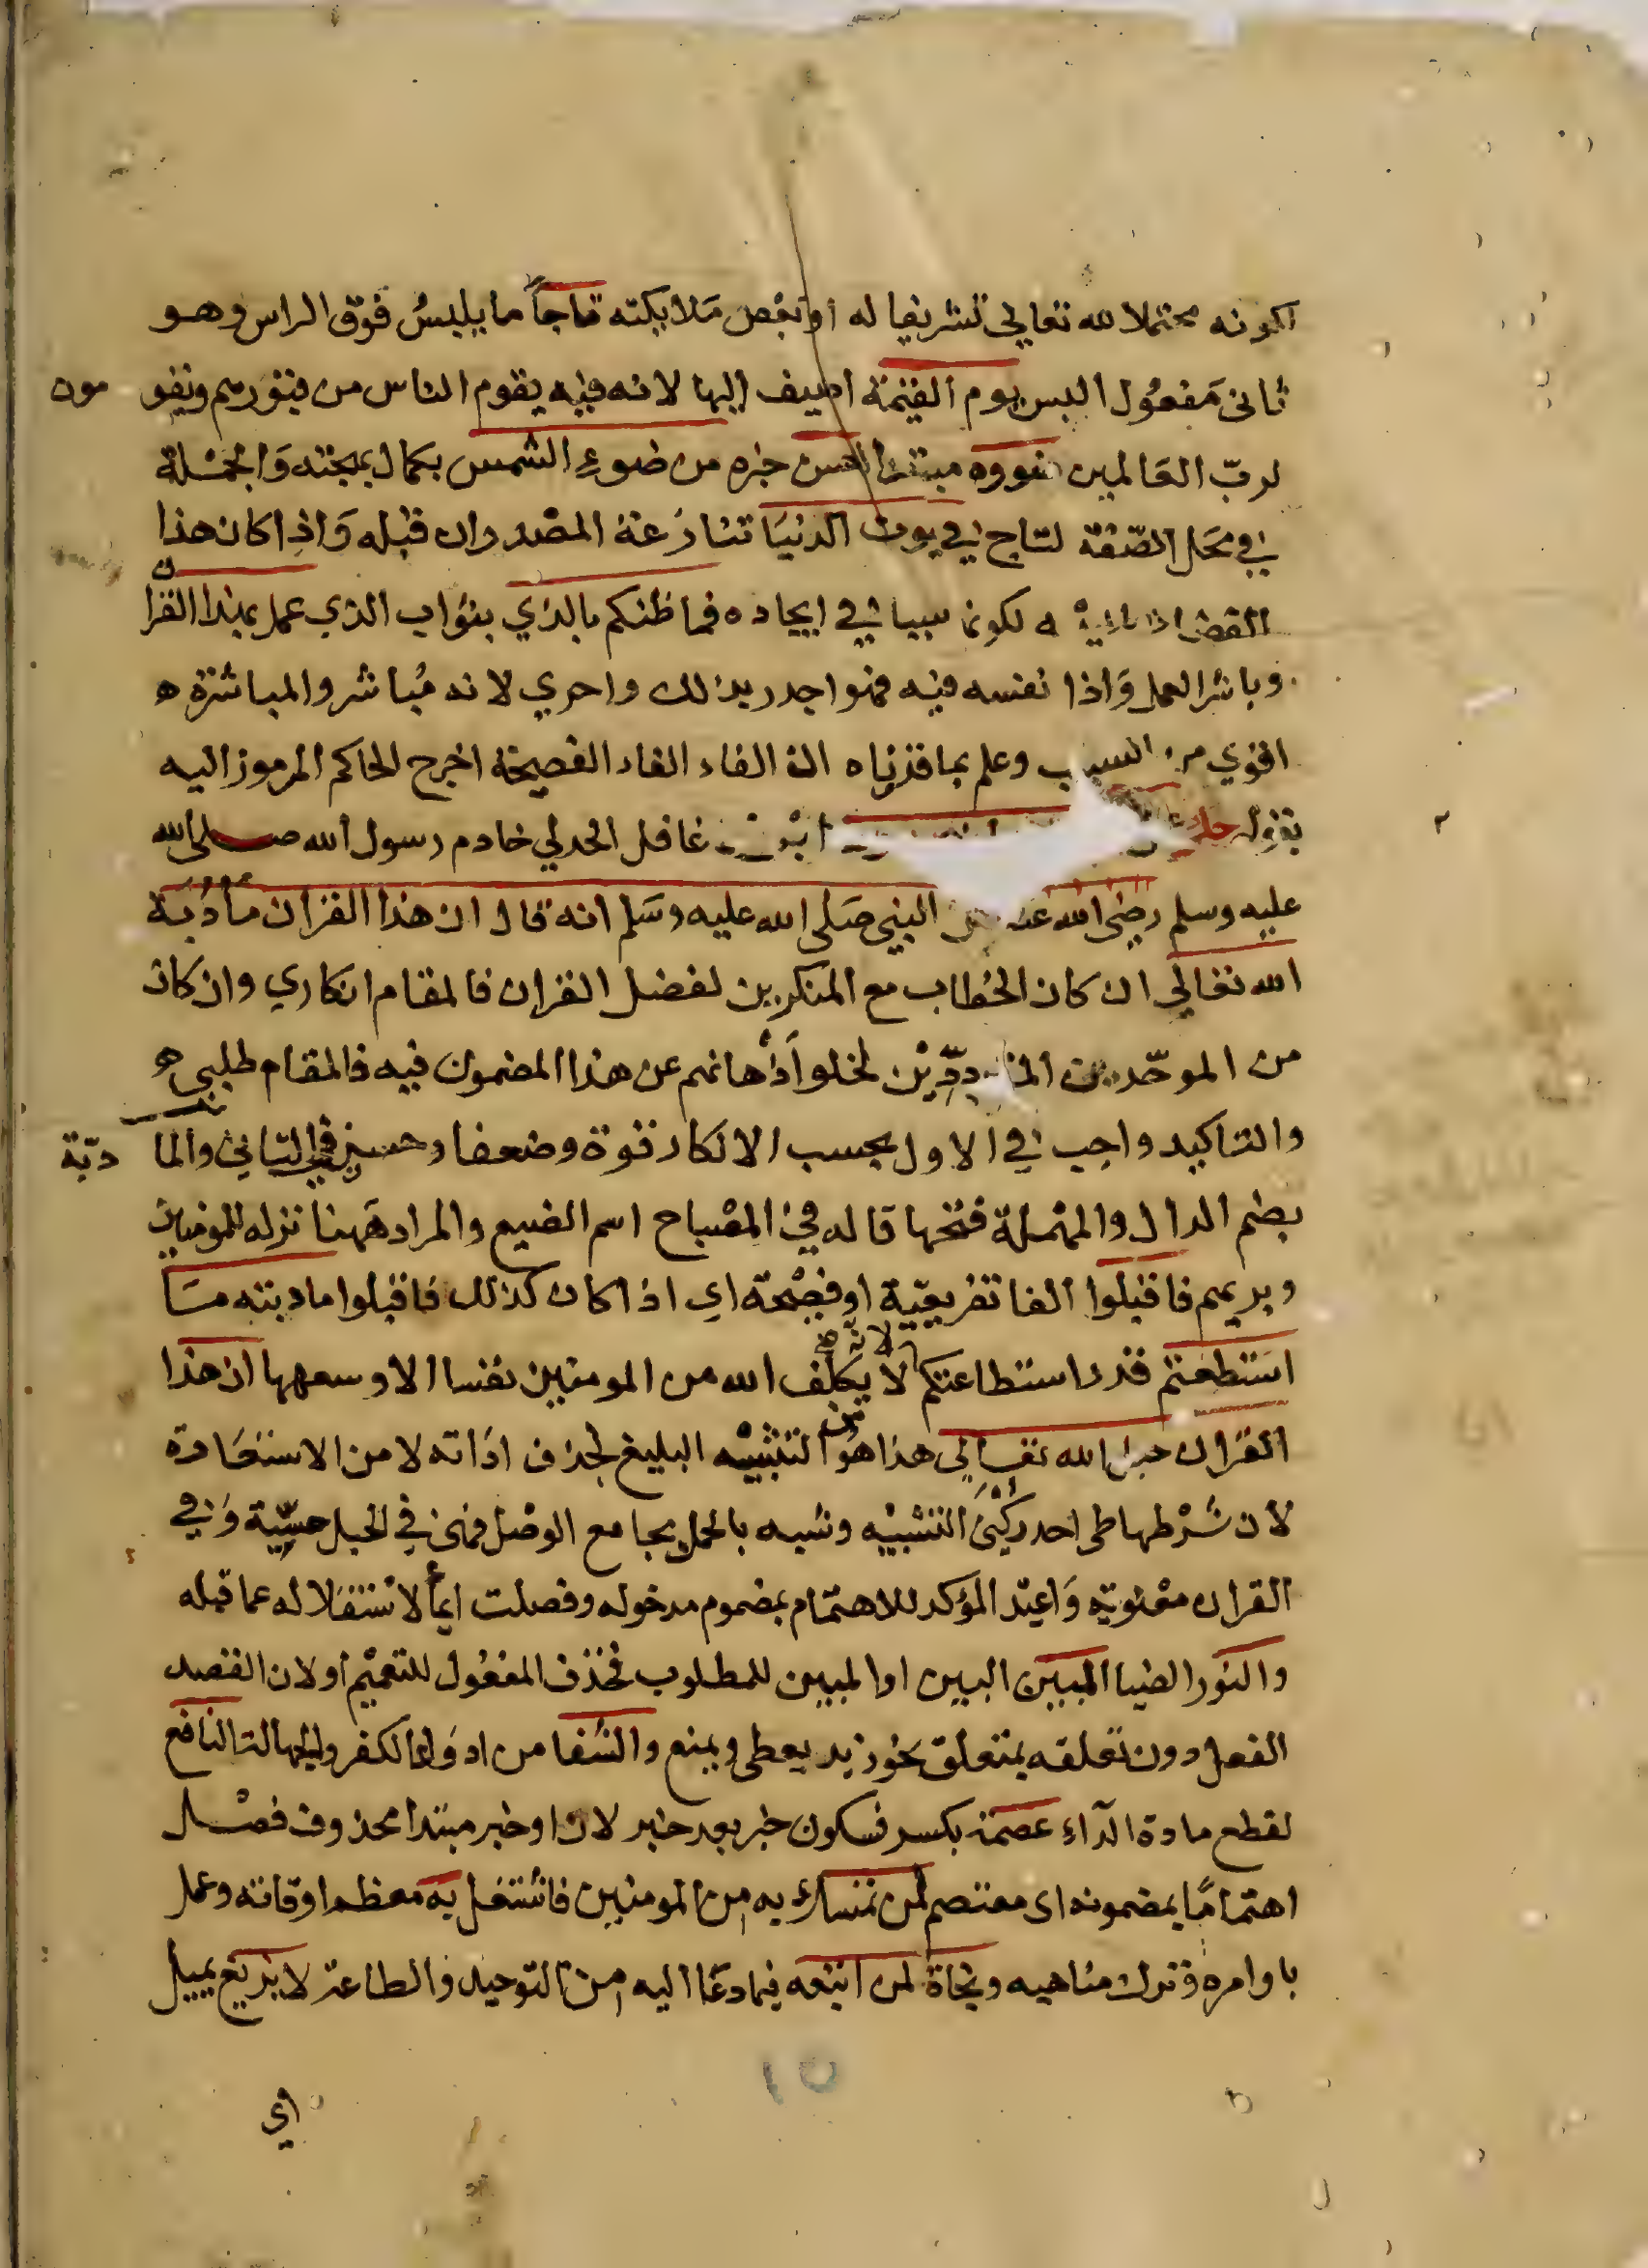 لكونه محتملا لله تعالى تشريفا له او لبعض ملائكته تاجاً ما يلبس فوق الراس وهو
ثانى مفعول البس يوم القيمة اضيف اليها لانه فيه يقوم الناس من قبورهم ويقومون
لرب العالمين ضووه مبتدا احسن خبره من ضوء الشمس بكمال بهجته والجملة
في محل الصفة لتاج في بيوت الدنيا تنازعه المصدران قبله واذا كان هذا
الفضل لكونهما سببا في ايجاده فما ظنكم بالذي بثواب الذي عمل بهذا القران
وباشر العمل واذا نفسه فيه فهو اجدر بذلك واحري لانه مباشر والمباشرة
اقوي من السبب وعلم بما قررناه ان الفاء الفاء الفصيحة اخرج الحاكم المرموز اليه
بقوله ابن غافل الهذلي خادم رسول الله صلى الله
عليه وسلم رضي الله عنه عن النبي صلى الله عليه وسلم انه قال ان هذا القران مأدُبَة
الله تعالى ان كان الخطاب مع المنكرين لفضل القران فالمقام انكاري وان كان
من الموحّدين المترددّين لخلو اَذْهانهم عن هذا المضمون فيه فالمقام طلبي
والتاكيد واجب في الاول بحسب الانكار قوة وضعفا وحسن في الثاني والمادبة
بضم الدال والمهملة فتحها قاله في المصباح اسم الضيع والمراد ههنا نزله للمومنين
وبريهم فاقبلوا الفا تفريعيّة او فصيحة اي اذا كان كذلك فاقبلوا مادبته مــا
استطعتم قدر استطاعتكم لانه لا يكلف الله من المومنين نفسا الا وسعها ان هذا
القران حبل الله تعالى هذا هو من التشبيه البليغ لحذف اداته لا من الاستعارة
لان شرطها طي احد ركني التشبيه وشبه بالحبل بجامع الوصل فهى في الحبل حسيّة وفي
القران معنوية واعيد المؤكد للاهتمام بمضموم مدخوله وفصلت ايما لاستقلاله عما قبله
والنور الضيا المبين البين او المبين للمطلوب فحذف المفعول للتعميم او لان القصد
الفعل دون تعلقه بمتعلق نحو زيد يعطي ويمنع والشفا من ادواء الكفر والجهالة النافع
لقطع مادة الدآء عصمة بكسر فسكون خبر بعد خبر لان او خبر مبتدا محذوف فصــل
اهتماما بمضمونه اى معتصم لمن تمسك به من المومنين فاشتغل به معظم اوقاته وعمل
باوامره وترك مناهيه ونجاة لمن اتبعه فيما دعا اليه من التوحيد والطاعة لا يزيغ يميل
اي